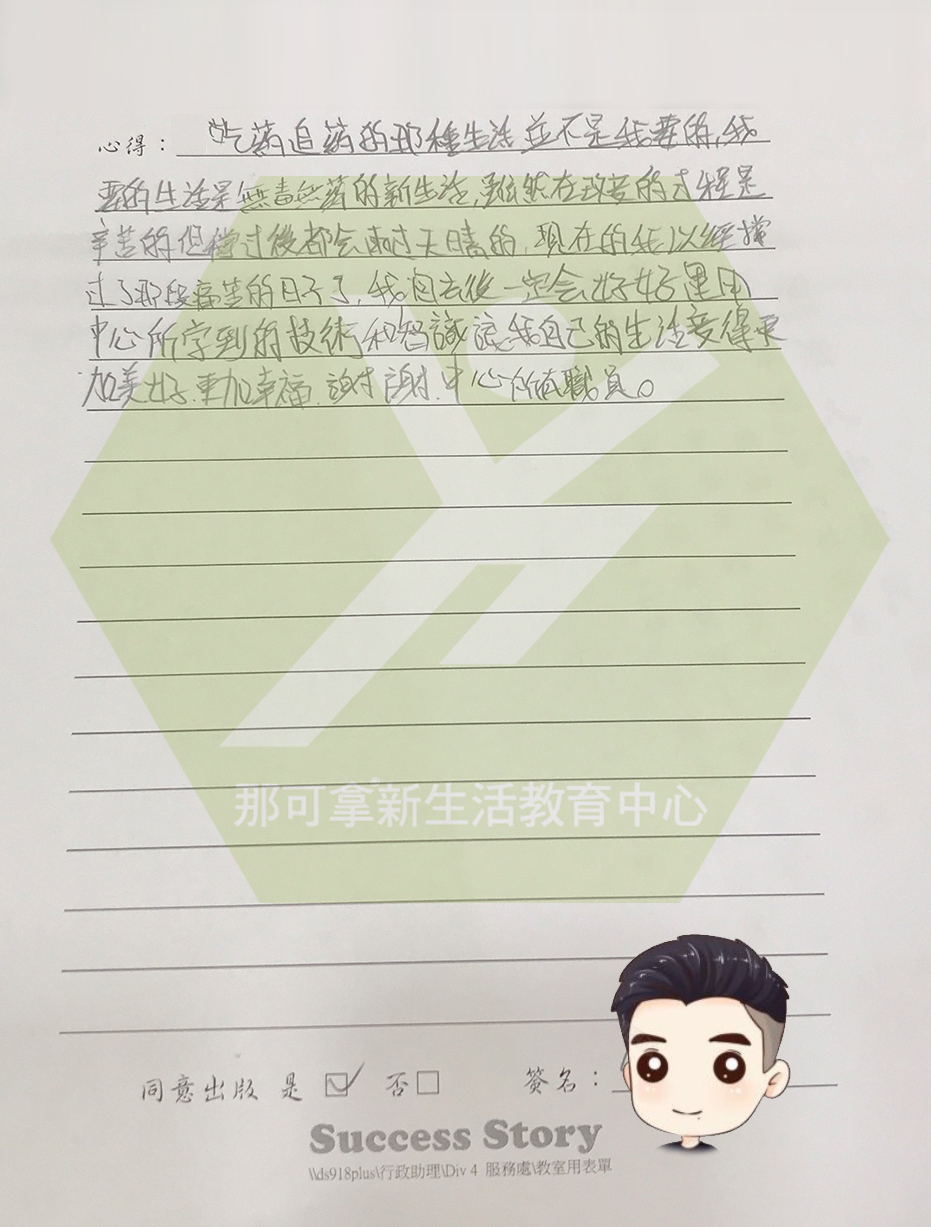 心得：吃药追药的那種生活並不是我要的,我
要的生活是無毒無药的新生活,雖然在改变的过程是
辛苦的但撐过後都会雨过天晴的,現在的我以經撐
过了那段痛苦的日子了,我回去後一定会好好運用
中心所学到的技術和智識讓我自己的生活变得更
加美好.更加幸福.謝謝.中心所有職員。
那可拿新生活教育中心
同意出版 是 ☑ 否 □ 簽名：
Success Story
\\ds918plus\行政助理\Div 4 服務處\教室用表單